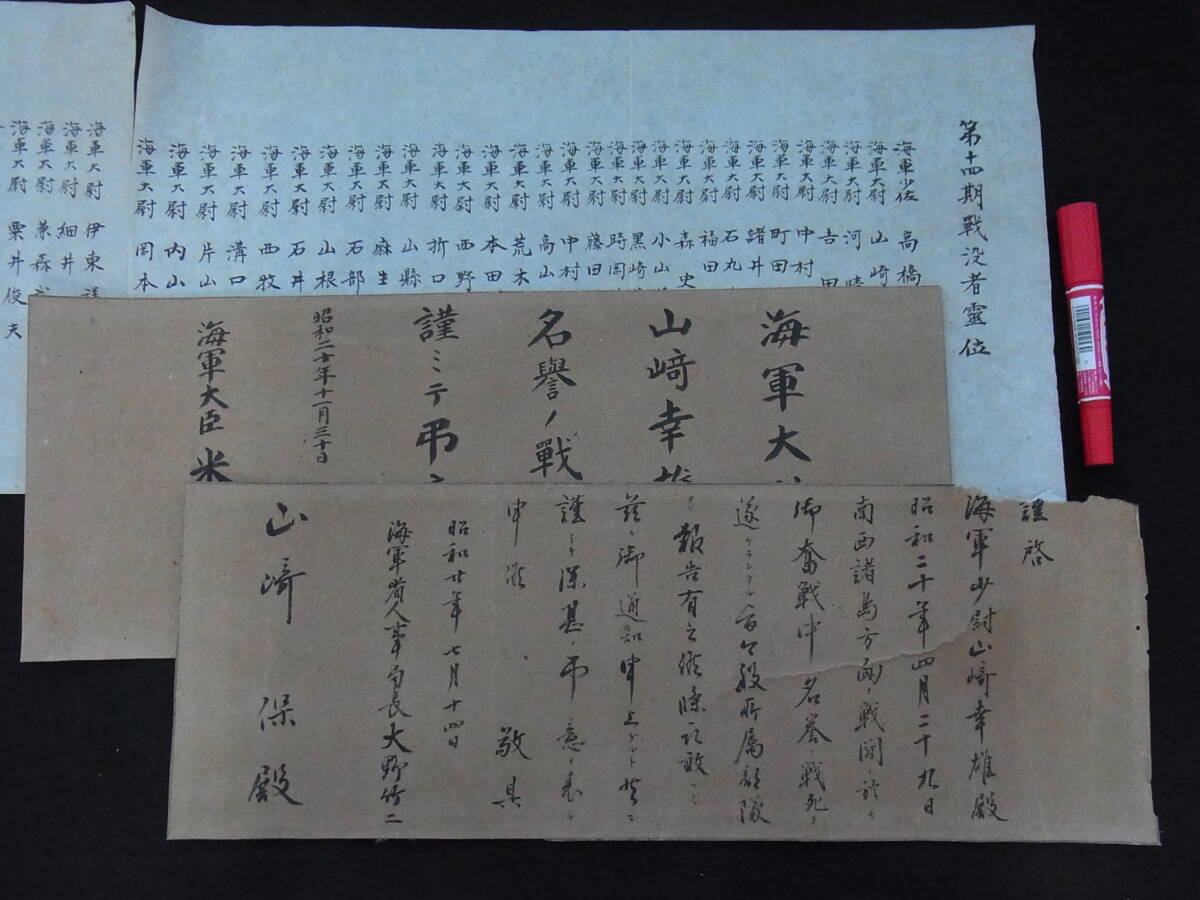 第十四期戦没者靈位
海軍少佐 高橋
海軍大尉 山崎
海軍大尉 河
海軍大尉 吉田
海軍大尉 中村
海軍大尉 町田
海軍大尉 諸井
海軍大尉 石丸
海軍大尉 福田
海軍大尉 森 史
海軍大尉 小山
海軍大尉 黒崎
海軍大尉 時岡
海軍大尉 藤田
海軍大尉 中村
海軍大尉 高山
海軍大尉 荒木
海軍大尉 本田
海軍大尉 西野
海軍大尉 折口
海軍大尉 山縣
海軍大尉 麻生
海軍大尉 石部
海軍大尉 山根
海軍大尉 石井
海軍大尉 西牧
海軍大尉 溝口
海軍大尉 片山
海軍大尉 内山
海軍大尉 岡本
海軍大尉 伊東
海軍大尉 細井
海軍大尉 兼森
海軍大尉 粟井俊夫
海軍大
山﨑幸
名譽ノ戰
謹ミテ弔
昭和二十年十一月三十日
海軍大臣 米
謹啓
海軍少尉山﨑幸雄殿
昭和二十年四月二十九日
南西諸島方面ノ戦闘ニ於テ
御奮戦中名誉ノ戦死ヲ
遂ゲラレタル旨今般所属部隊
ヨリ報告有之候條不取敢
茲ニ御通知申上グルト共ニ
謹ミテ深甚ノ弔意ヲ表シ
申候 敬具
昭和廿年七月十四日
海軍省人事局長 大野竹二
山﨑 保殿